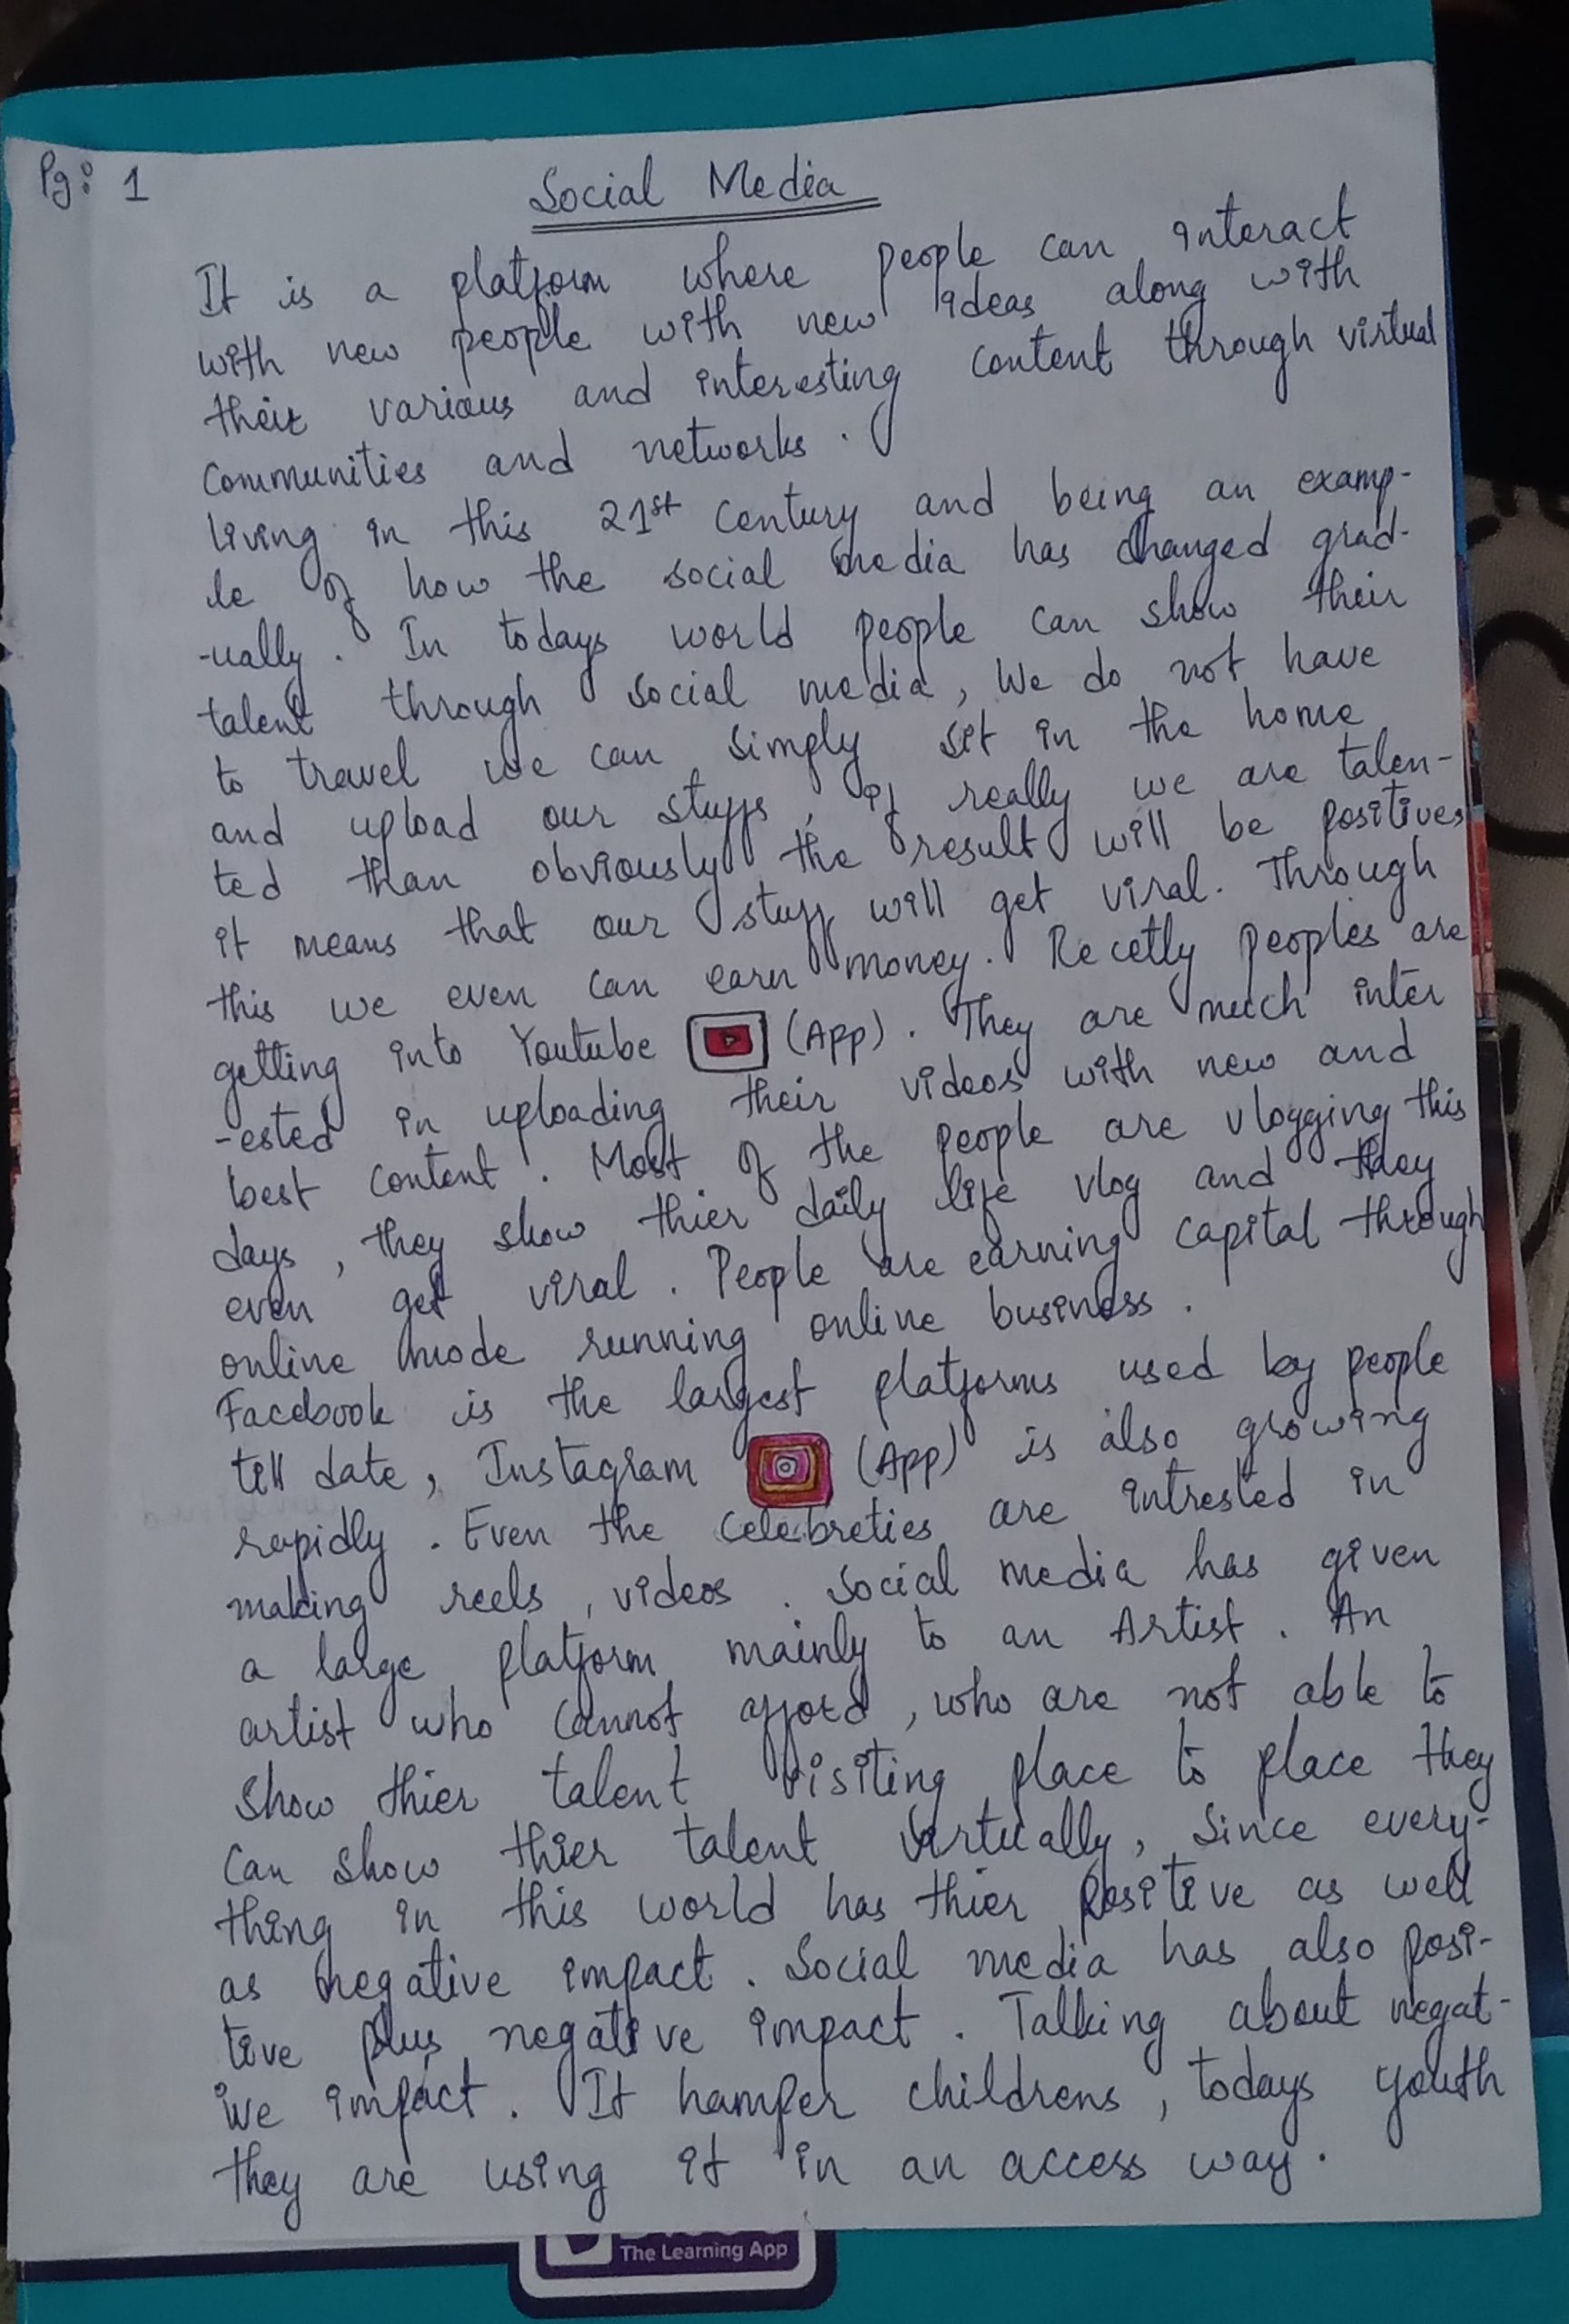 Pg: 1
Social Media
It is a platform where people can interact
with new people with new ideas along with
their various and interesting content through virtual
communities and networks.
living in this 21st century and being an examp-
le of how the social media has changed grad-
-ually. In todays world people can show their
talent through social media, We do not have
to travel we can simply sit in the home
and upload our stuffs, if really we are talen-
ted than obviously the result will be positives
it means that our stuff will get viral. Through
this we even can earn money. Recetly peoples are
getting into Youtube (App). They are much inter
-ested in uploading their videos with new and
best content. Most of the people are vlogging this
days, they show thier daily life vlog and they
even get viral. People are earning capital through
online mode running online business.
Facebook is the largest platforms used by people
till date, Instagram (App) is also growing
rapidly. Even the celebreties are intrested in
making reels, videos. Social media has given
a large platform mainly to an Artist. An
artist who cannot afford, who are not able to
show thier talent visiting place to place they
can show thier talent virtually, Since every-
thing in this world has thier positive as well
as negative impact. Social media has also posi-
tive plus negative impact. Talking about negat-
ive impact. It hamper childrens, todays youth
they are using it in an access way.
The Learning App